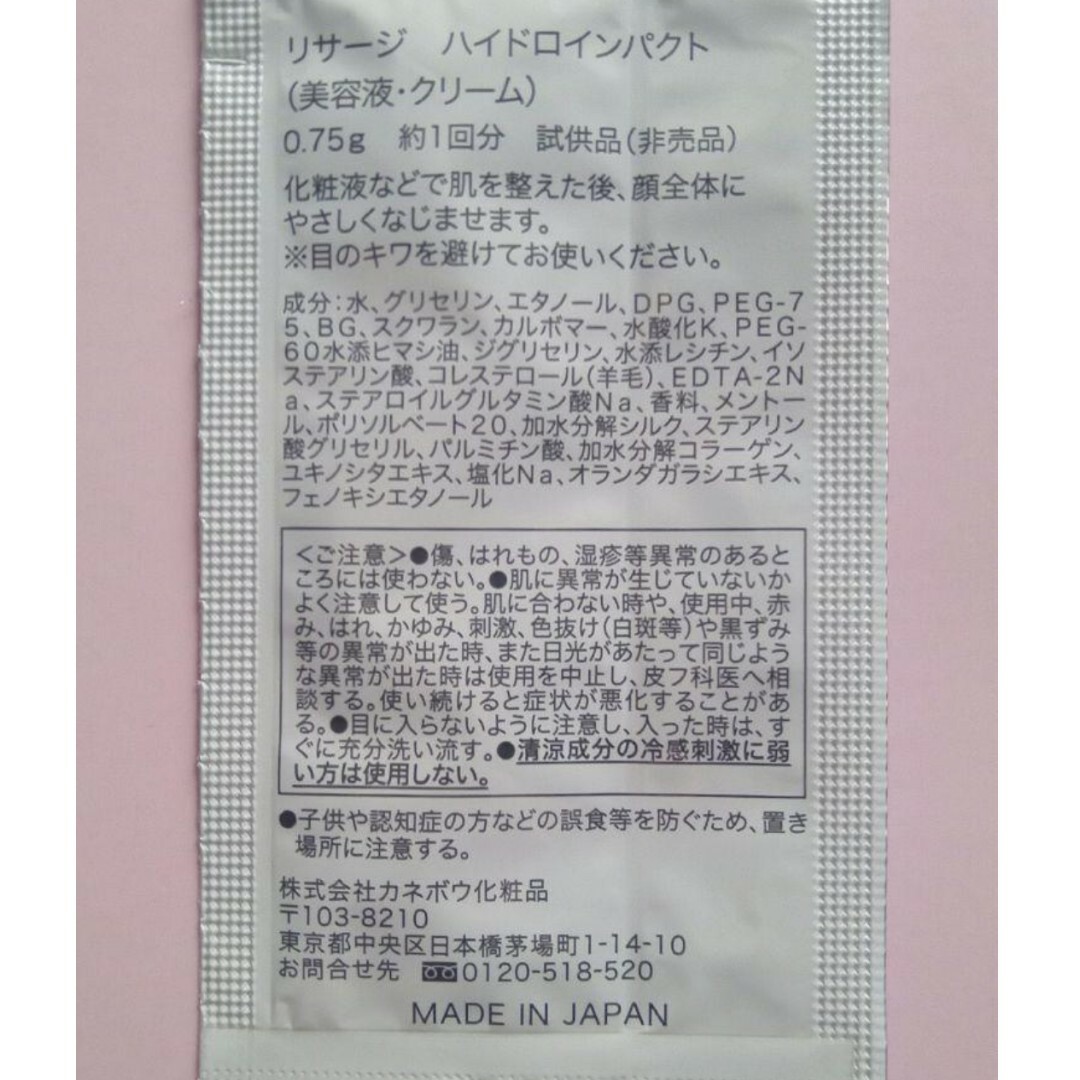 リサージ ハイドロインパクト
(美容液・クリーム)
0.75g 約1回分 試供品(非売品)
化粧液などで肌を整えた後、顔全体に
やさしくなじませます。
※目のキワを避けてお使いください。
成分：水、グリセリン、エタノール、DPG、PEG-7
5、BG、スクワラン、カルボマー、水酸化K、PEG-
60水添ヒマシ油、ジグリセリン、水添レシチン、イソ
ステアリン酸、コレステロール(羊毛)、EDTA-2N
a、ステアロイルグルタミン酸Na、香料、メントー
ル、ポリソルベート20、加水分解シルク、ステアリン
酸グリセリル、パルミチン酸、加水分解コラーゲン、
ユキノシタエキス、塩化Na、オランダガラシエキス、
フェノキシエタノール
<ご注意>●傷、はれもの、湿疹等異常のあると
ころには使わない。●肌に異常が生じていないか
よく注意して使う。肌に合わない時や、使用中、赤
み、はれ、かゆみ、刺激、色抜け(白斑等)や黒ずみ
等の異常が出た時、また日光があたって同じよう
な異常が出た時は使用を中止し、皮フ科医へ相
談する。使い続けると症状が悪化することがあ
る。●目に入らないように注意し、入った時は、す
ぐに充分洗い流す。●清涼成分の冷感刺激に弱
い方は使用しない。
●子供や認知症の方などの誤食等を防ぐため、置き
場所に注意する。
株式会社カネボウ化粧品
〒103-8210
東京都中央区日本橋茅場町1-14-10
お問合せ先 0120-518-520
MADE IN JAPAN